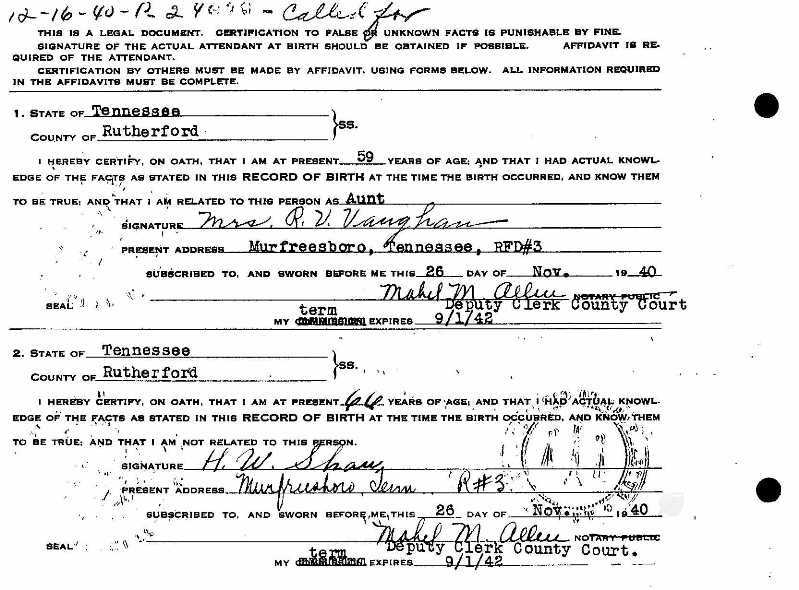 12-16-40-R 2 - Called for
THIS IS A LEGAL DOCUMENT. CERTIFICATION TO FALSE OR UNKNOWN FACTS IS PUNISHABLE BY FINE.
SIGNATURE OF THE ACTUAL ATTENDANT AT BIRTH SHOULD BE OBTAINED IF POSSIBLE. AFFIDAVIT IS RE-
QUIRED OF THE ATTENDANT.
CERTIFICATION BY OTHERS MUST BE MADE BY AFFIDAVIT, USING FORMS BELOW. ALL INFORMATION REQUIRED
IN THE AFFIDAVITS MUST BE COMPLETE.
1. STATE OF Tennessee
COUNTY OF Rutherford } SS.
I HEREBY CERTIFY, ON OATH, THAT I AM AT PRESENT 59 YEARS OF AGE; AND THAT I HAD ACTUAL KNOWL-
EDGE OF THE FACTS AS STATED IN THIS RECORD OF BIRTH AT THE TIME THE BIRTH OCCURRED, AND KNOW THEM
TO BE TRUE; AND THAT I AM RELATED TO THIS PERSON AS Aunt
SIGNATURE Mrs. R. V. Vaughan
PRESENT ADDRESS Murfreesboro, Tennessee, RFD#3
SUBSCRIBED TO, AND SWORN BEFORE ME THIS 26 DAY OF Nov. 19 40
Mabel M. Allen NOTARY PUBLIC
SEAL Deputy Clerk County Court
term
MY COMMISSION EXPIRES 9/1/42
2. STATE OF Tennessee
COUNTY OF Rutherford } SS.
I HEREBY CERTIFY, ON OATH, THAT I AM AT PRESENT 66 YEARS OF AGE; AND THAT I HAD ACTUAL KNOWL-
EDGE OF THE FACTS AS STATED IN THIS RECORD OF BIRTH AT THE TIME THE BIRTH OCCURRED, AND KNOW THEM
TO BE TRUE; AND THAT I AM NOT RELATED TO THIS PERSON.
SIGNATURE H. W. Shaw
PRESENT ADDRESS Murfreesboro, Tenn R#3
SUBSCRIBED TO, AND SWORN BEFORE ME, THIS 26 DAY OF Nov. 19 40
Mabel M. Allen NOTARY PUBLIC
SEAL Deputy Clerk County Court.
term
MY COMMISSION EXPIRES 9/1/42